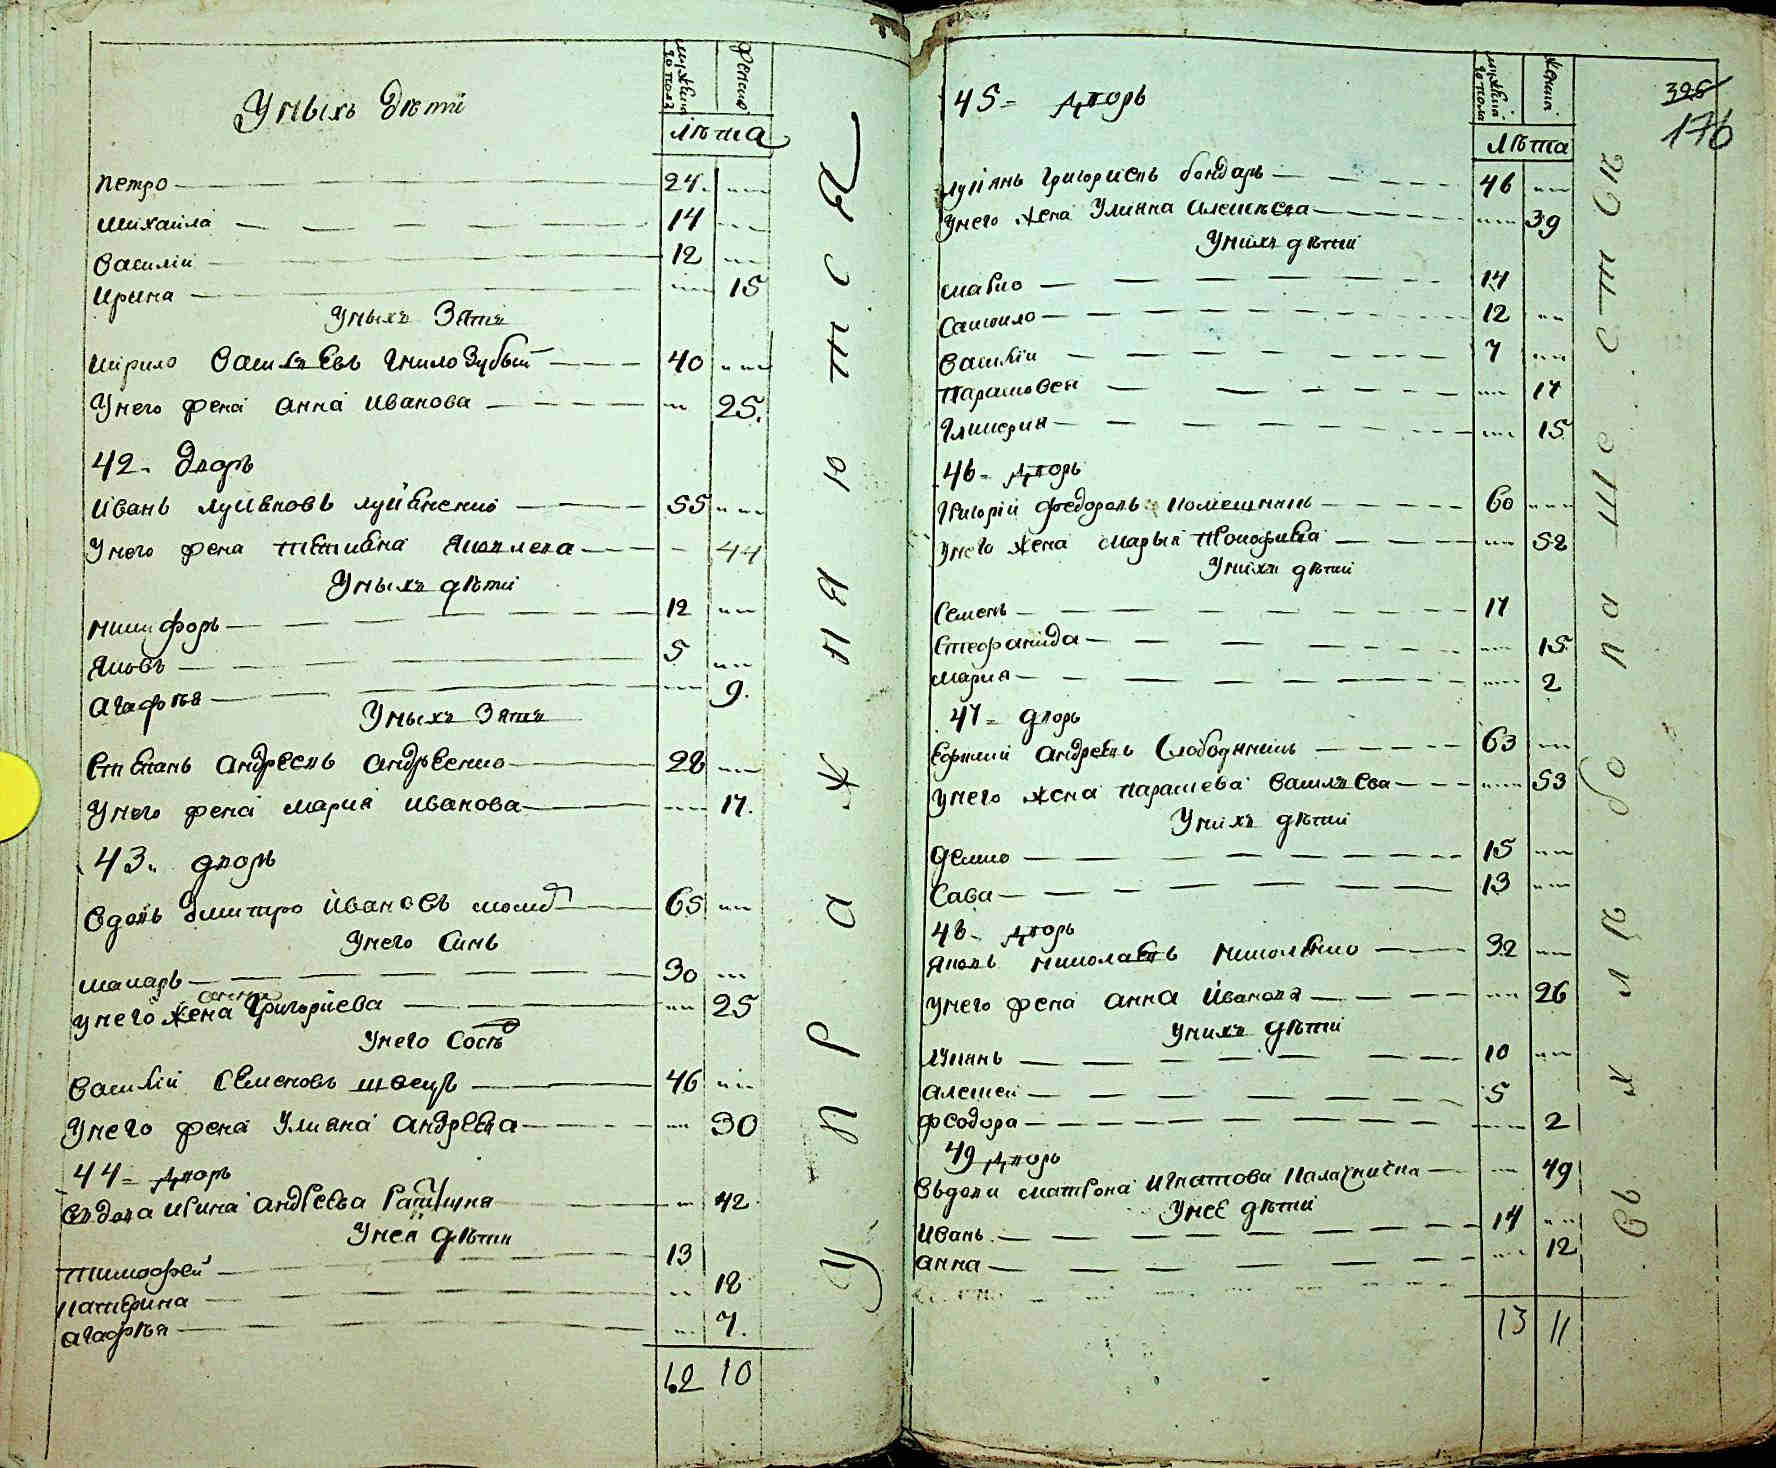 Умыхъ дѣти
мужска го пола
женска
лѣта
Петро 24
Михаила 14
Василій 12
Ирина 15
Умыхъ Зять
Кирило Василѣевъ Гнилозубый 40
Унего жена Анна Иванова 25.
42. дворъ
Иванъ Лукяновъ Лукяненко 55
Унего жена Татияна Яковлева 44
Умыхъ дѣти
Никифоръ 12
Яковъ 5
Агафѣя 9.
Умыхъ Зять
Степанъ Андреевъ Андреенко 28
Унего жена Мария Иванова 17.
43. дворъ
Вдовъ Дмитро Ивановъ 65
Унего Синъ
Макаръ 30
Унего жена Григориева 25
Унего Сосѣд
Василій Семеновъ швецъ 46
Унего жена Улияна Андреева 30
44 дворъ
Вдова Ирина Андреева 42
Унея дѣти
Тимофей 13
Катерина 18
Агафѣя 7.
12 10
У П Р А Ж Н Я Ю Т С
45 дворъ
мужска го пола
женска
лѣта
395
176
Лукянъ Григориевъ бондаръ 46
Унего жена Улияна Алексѣева 39
Унихъ дѣтий
Марко 14
Самойло 12
Василій 7
Парасковея 17
Гликерия 15
46 дворъ
Григорій Федоровъ 60
Унего жена Марья Прокофиева 52
Унихъ дѣтий
Семенъ 17
Стефанида 15
Мария 2
47 дворъ
Ефимий Андреевъ Слободяникъ 63
Унего жена Параскева Василѣева 53
Унихъ дѣтий
Демко 15
Сава 13
48 дворъ
Яковъ Николаевъ 32
Унего жена Анна Иванова 26
Унихъ дѣтий
Лукянъ 10
Алексей 5
Феодора 2
49 дворъ
Вьдова Матрона Игнатова 49
Унеё дѣтий
Иванъ 14
Анна 12
13 11
въ хлѣбопашествѣ